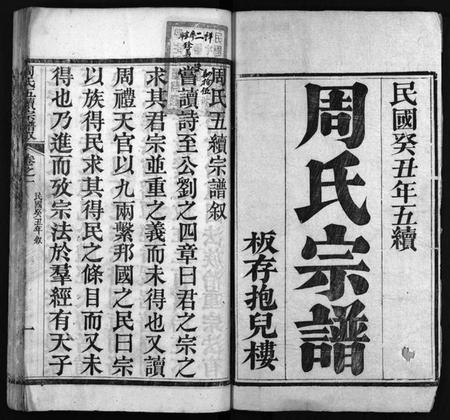 民國癸丑年五續
周氏宗譜
板存抱兒樓
周氏五續宗譜叙
嘗讀詩至公劉之四章曰君之宗之
求其君宗並重之義而未得也又讀
周禮天官以九兩繫邦國之民曰宗
以族得民求其得民之條目而又未
得也乃進而攷宗法於羣經有天子
周氏五續宗譜
卷之一
民國癸丑年叙
一